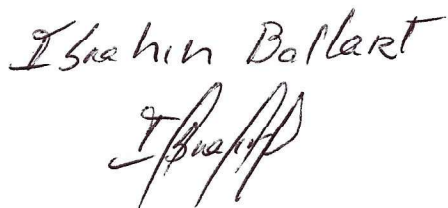 Ibrahin Ballart